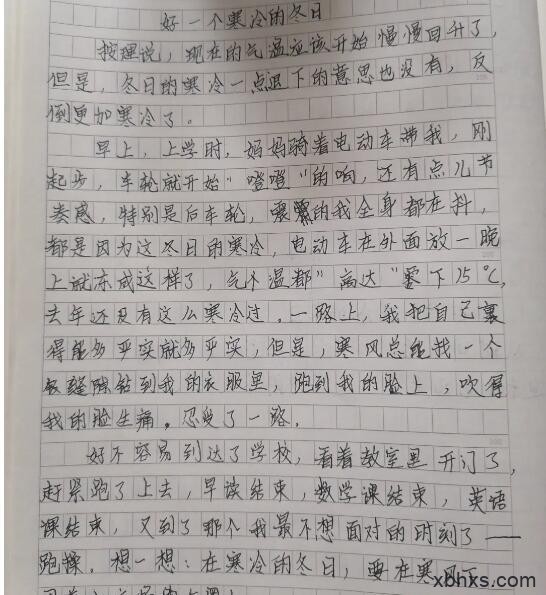 好一个寒冷的冬日
按理说，现在的气温应该开始慢慢回升了，
但是，冬日的寒冷一点退下的意思也没有，反
倒更加寒冷了。
早上，上学时，妈妈骑着电动车带我，刚
起步，车轮就开始"噔噔"的响，还有点儿节
奏感，特别是后车轮，震的我全身都在抖，
都是因为这冬日的寒冷，电动车在外面放一晚
上就冻成这样了，气温都"高达"零下15℃，
去年还没有这么寒冷过。一路上，我把自己裹
得能多严实就多严实，但是，寒风总能找一个
缝隙钻到我的衣服里，跑到我的脸上，吹得
我的脸生痛。忍受了一路。
好不容易到达了学校，看着教室里开门了，
赶紧跑了上去，早读结束，数学课结束，英语
课结束，又到了那个我最不想面对的时刻了——
跑操。想一想：在寒冷的冬日，要在寒风下，
xbhxs.com